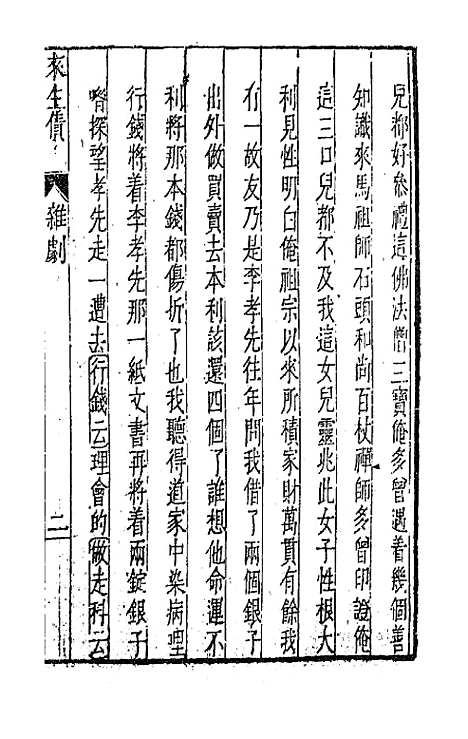 兒都好參禮這佛法僧三寶俺多曾遇着幾個善
知識來馬祖師石頭和尚百杖禪師多曾印證俺
這三口兒都不及我這女兒靈兆此女子性根大
利見性明白俺祖宗以來所積家財萬貫有餘我
有一故友乃是李孝先往年問我借了兩個銀子
出外做買賣去本利該還四個了誰想他命運不
利將那本錢都傷折了也我聽得道家中染病哩
行錢將着李孝先那一紙文書再將着兩錠銀子
喒探望孝先走一遭去行錢云理會的做走科云
來生債
雜劇
二